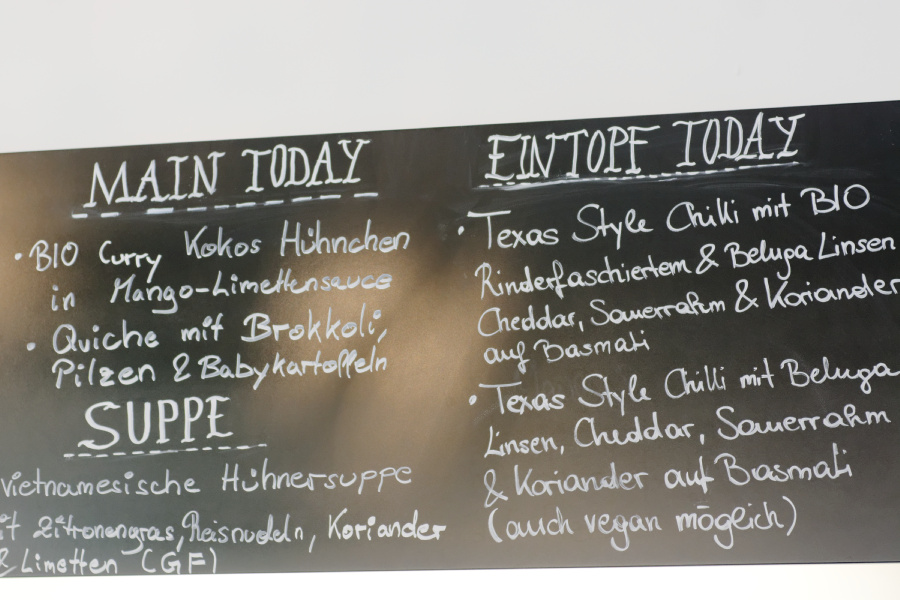 MAIN TODAY
• BIO Curry Kokos Hühnchen
in Mango-Limettensauce
• Quiche mit Brokkoli,
Pilzen & Babykartoffeln
SUPPE
vietnamesische Hühnersuppe
it Zitronengras, Reisnudeln, Koriander
& Limetten (GF)
EINTOPF TODAY
• Texas Style Chilli mit BIO
Rinderfaschiertem & Beluga Linsen
Cheddar, Sauerrahm & Koriander
auf Basmati
• Texas Style Chilli mit Beluga
Linsen, Cheddar, Sauerrahm
& Koriander auf Basmati
(auch vegan möglich)